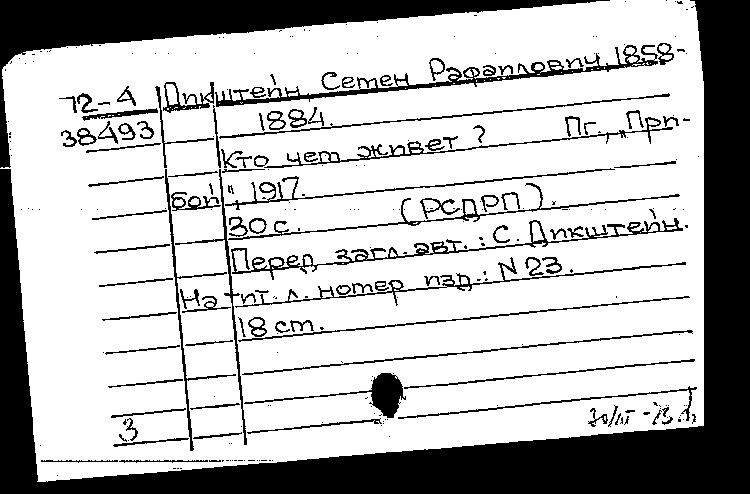 72-4 Дикштейн, Семен Рафаилович, 1858-
38493 1884.
Кто чем живет? Пг., „При-
бой", 1917.
30 с. (РСДРП).
Перед загл. авт.: С. Дикштейн.
На тит. л. номер изд.: N 23.
18 см.
3